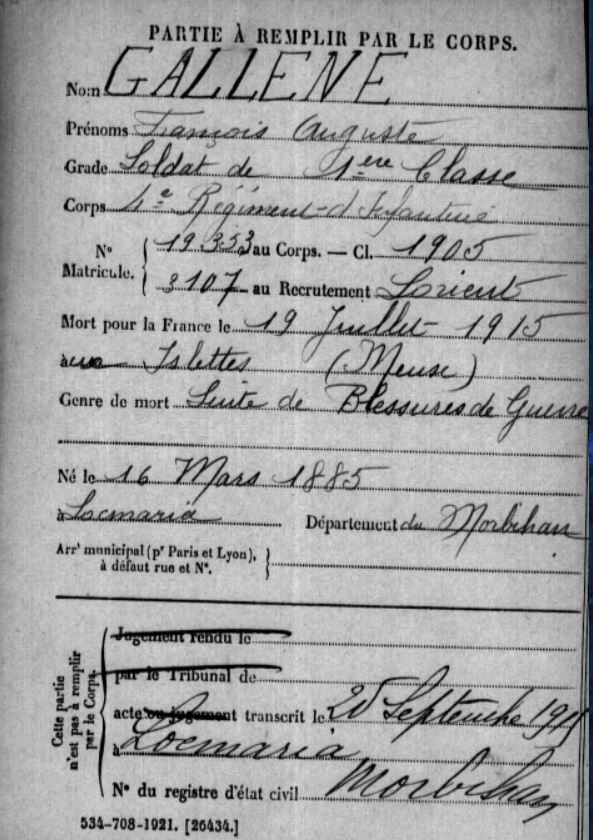 PARTIE À REMPLIR PAR LE CORPS.
Nom GALLENE
Prénoms François Auguste
Grade Soldat de 1ère Classe
Corps 4e Régiment d'Infanterie
N° Matricule. { 19353 au Corps. — Cl. 1905
3107 au Recrutement Lorient
Mort pour la France le 19 Juillet 1915
à Islettes (Meuse)
Genre de mort Suite de Blessures de Guerre
Né le 16 Mars 1885
à Locmaria Département du Morbihan
Arrt municipal (pr Paris et Lyon), }
à défaut rue et N°.
Cette partie n'est pas à remplir par le Corps.
Jugement rendu le
par le Tribunal de
acte ou jugement transcrit le Septembre
à Locmaria
N° du registre d'état civil Morbihan
534-708-1921. [26434.]